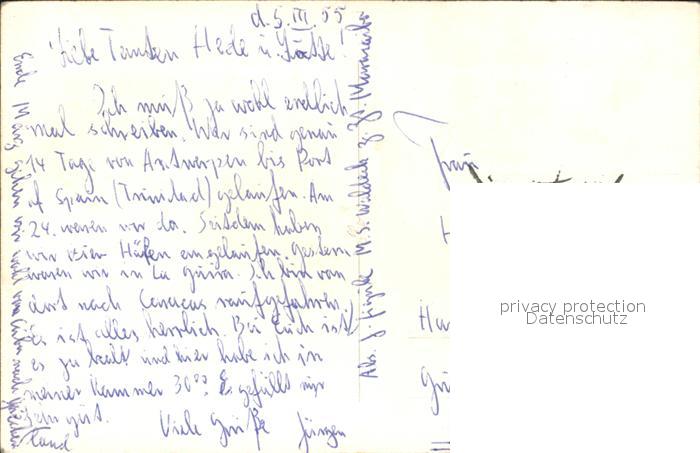 d. 5. III. 55
Liebe Tanten Hede u. Lotte!
Ich muß ja wohl endlich
mal schreiben. Wir sind genau
14 Tage von Antwerpen bis Port
of Spain (Trinidad) gelaufen. Am
24. waren wir da. Seitdem haben
wir vier Häfen angelaufen. Gestern
waren wir in La Guaira. Ich bin von
dort nach Caracas raufgefahren,
es ist alles herrlich. Bei Euch ist
es ja kalt und hier habe ich in
meiner Kammer 30°. Es gefällt mir
sehr gut.
Viele Grüße Jürgen
Ende März gehen wir wohl von
land
Abs. J. M.S. z. Zt. Maracaibo
Frau
Gr
privacy protection
Datenschutz